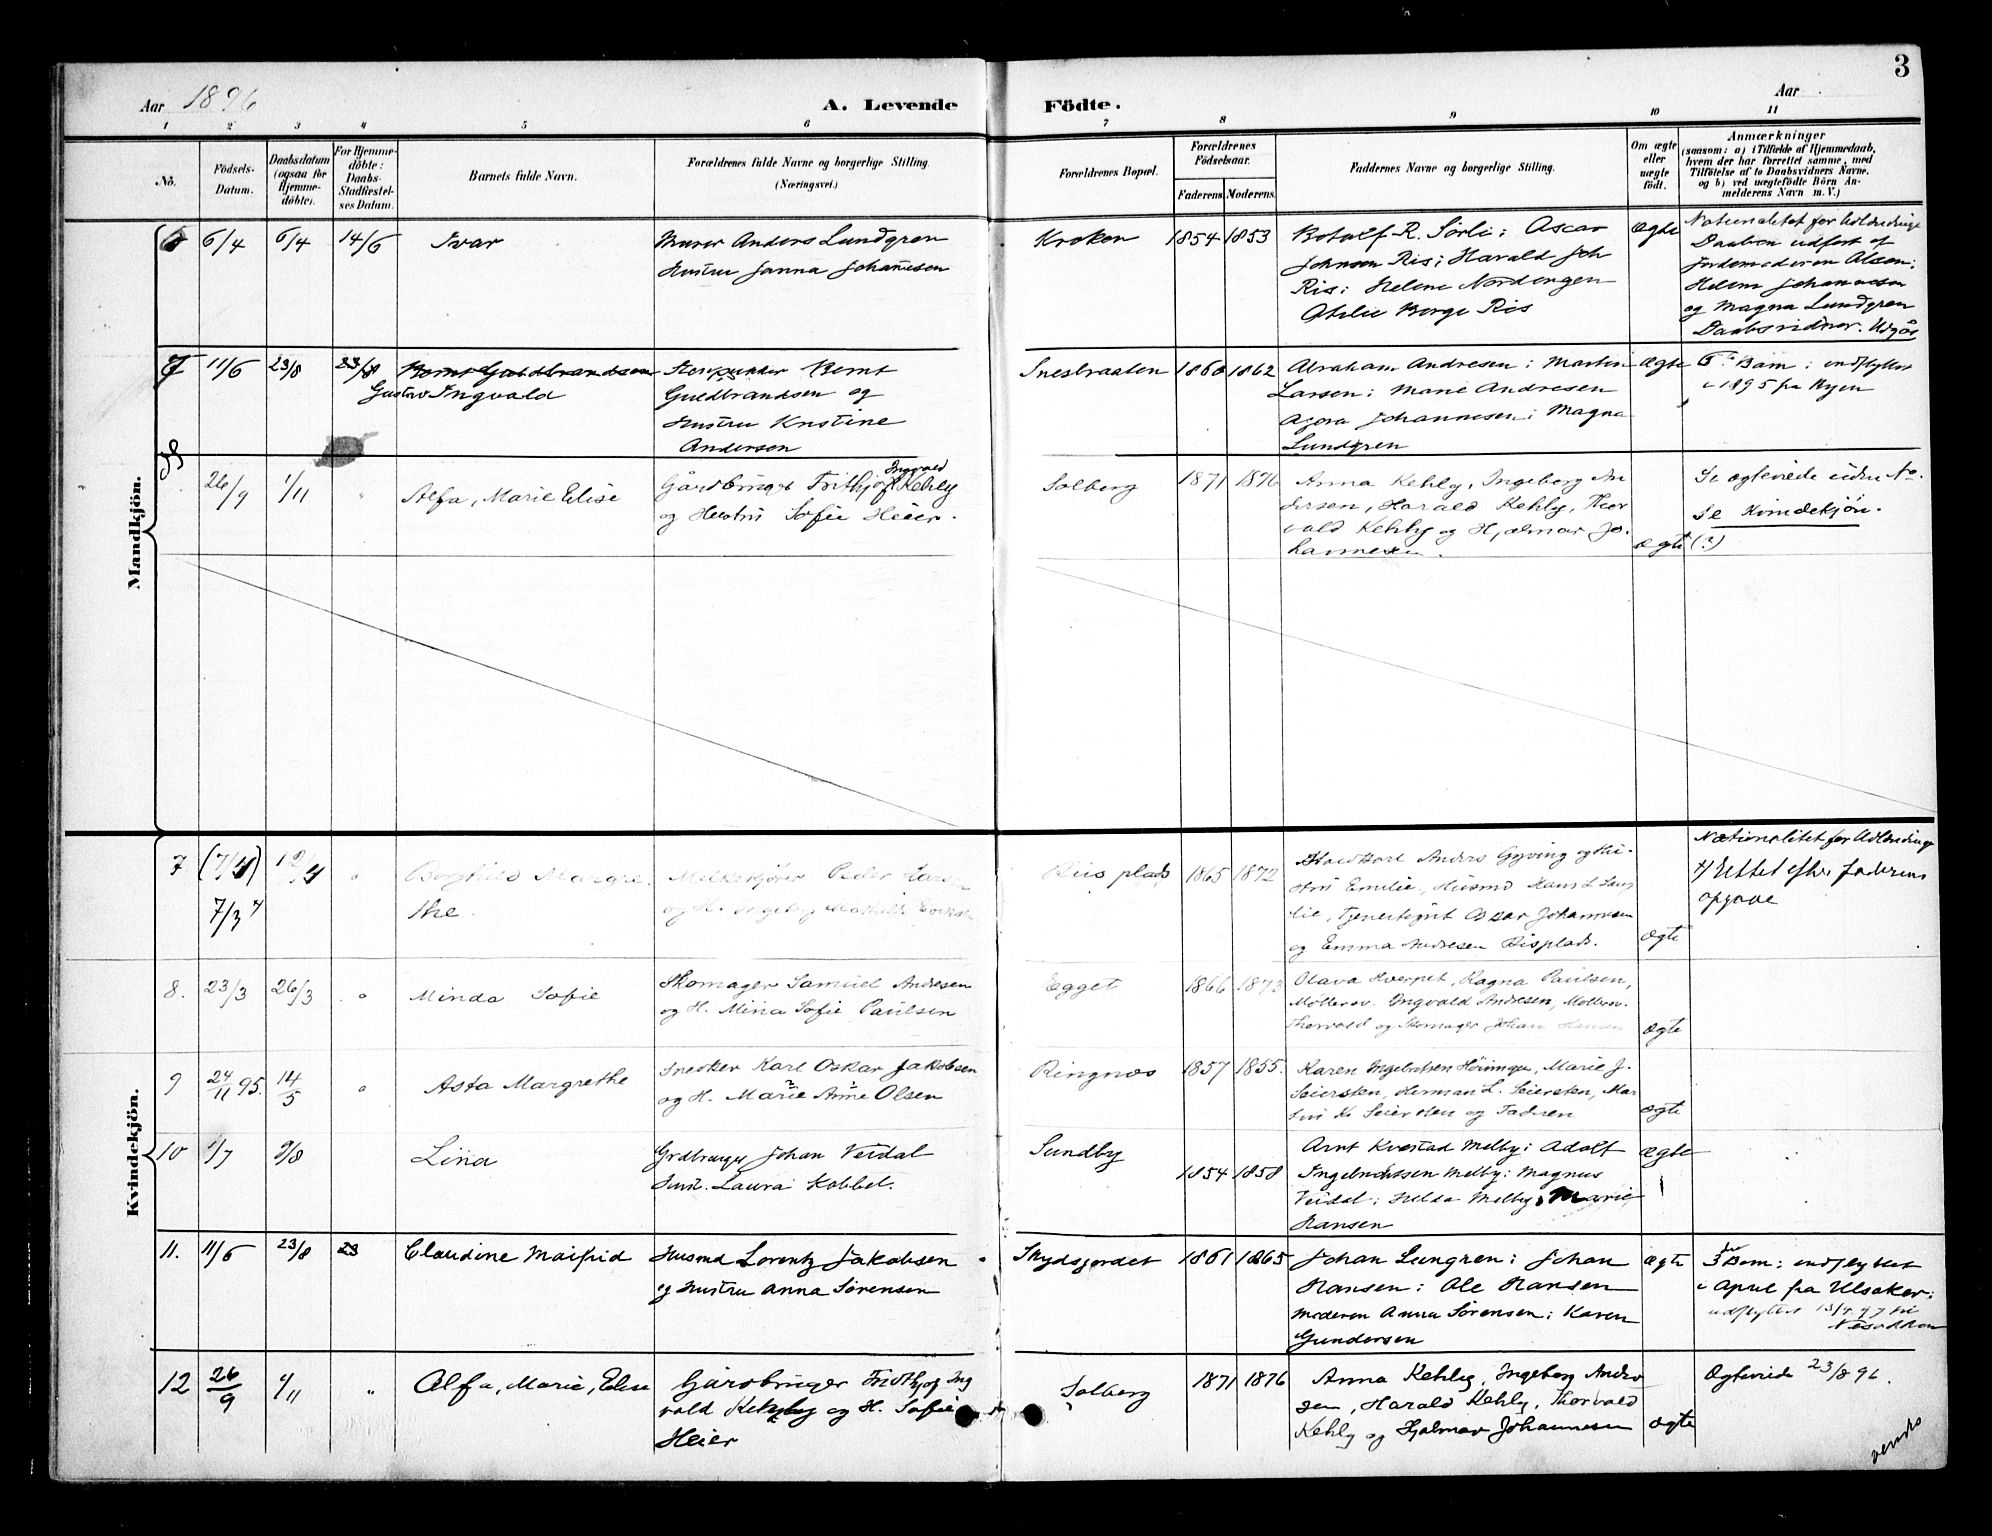 3
Aar 1896
A. Levende
Födte.
Aar
1 2 3 4 5 6 7 8 9 10 11
No.
Födsels-
Datum.
Daabsdatum
(ogsaa for
Hjemme-
döbte).
For Hjemme-
döbte:
Daabs-
Stadfæstel-
ses Datum.
Barnets fulde Navn.
Forældrenes fulde Navne og borgerlige Stilling.
(Næringsvei.)
Forældrenes Bopæl.
Forældrenes
Födselsaar.
Faderens Moderens
Faddernes Navne og borgerlige Stilling.
Om ægte
eller
uægte
födt.
Anmærkninger
(saasom: a) i Tilfælde af Hjemmedaab,
hvem der har forrettet samme, med
Tilföielse af to Daabsvidners Navne.
og b) ved uægtefödte Börn An-
melderens Navn m. V.)
Mandkjön.
6/4 6/4 14/6 Ivar
Murer Anders Lundgren
Hustru Janna Johannesen
Kroken 1854 1853
Botolf R. Sörli: Oscar
Johnsen Ris: Harald Joh
Ris: Helene Nordengen
Otilie Borge Ris
Ægte
Nationalitet for Udlændinge
Daaben udfört af
Jordemoderen Olsen:
Helene Johannesen
og Magna Lundgren
Daabsvidner.
7 11/6 23/8 23/8
Bernt Guldbrandsen
Gustav Ingvald
Bernt
Guldbrandsen og
Hustru Kristine
Andersen
1860 1862
Abraham Andresen: Martin
Larsen: Marie Andresen
Agora Johannesen: Magna
Lundgren
Ægte
Barn: indflyttet
i 1895 fra Ryen
26/9 1/11 "
Alfa, Marie Elise
Gårdbruger Frithjof Ingvald Kehly
og Hustru Sofie Heier.
Solberg 1871 1876
Anna Kehly, Ingeborg An
dersen, Harald Kehly, Thor
vald Kehly og Hjalmar Jo.
hannesen.
ægte
Se ægteviede uden No.
Se Kvindekjön.
(?)
Kvindekjön.
7 (7/4) 19/4 "
7/3 x)
Borghild Margre.
the.
Peder Lars
og H. Ingeborg Mathilde
Riis plads 1865 1872
Anders Gyving og Hu-
stru Emilie, Husmd Hans L. Saug
lie, Tjenestegut Oskar Johannesen
og Emma Andresen Risplads.
ægte
Nationalitet for Udlændinge
x) Rettet efter faderens
opgave
8. 23/3 26/3 "
Minda Sofie
Skomager Samuel Andresen
og H. Mina Sofie Paulsen
Egget 1866 1873
Olava Hverpet, Ragna Paulsen,
Mollerev. Ingvald Andresen, Mollerev.
Thorvald og Skomager Johan Hansen
ægte
9 24/11 95. 14/5 "
Asta Margrethe
Snedker Karl Oskar Jakobsen
og H. Marie 2 Anne 1 Olsen
Ringnes 1857 1855.
Karen Marie J.
Seiersten, Herman L. Seiersten, Mar
Seiersten og Faderen
ægte
10 1/7 9/8
Lina
Grdbruger Johan Veidal
Hust. Laura Kobbel.
Sundby
1854 1858
Arnt Kvestad Melby: Adolf
Ingebrigtssen Melby: Magnus
Veidal: Hilda Melby: Marie
Hansen
Ægte
11. 11/6 23/8 23
Claudine Maifrid
Husmd Lorentz Jakobsen
og Hustru Anna Sörensen
Skydsjordet 1861 1865
Johan Lungren: Johan
Hansen: Ole Hansen
Moderen Anna Sörensen: Karen
Gundersen
Ægte
3die Barn: indflyttet
i April fra Ulsaker:
udflyttet 13/4 97 til
Nesodden
12 26/9 1/11 "
Alfa, Marie, Elise
Gårdbruger Fridthjof Ing
vald Kehly og H. Sofie
Heier
Solberg 1871 1876
Anna Kehly, Ingeborg Andre
sen, Harald Kehly, Thorvald
Kehly og Hjalmar Johannesen
ægte
Ægteviede 23/8 96.
vend